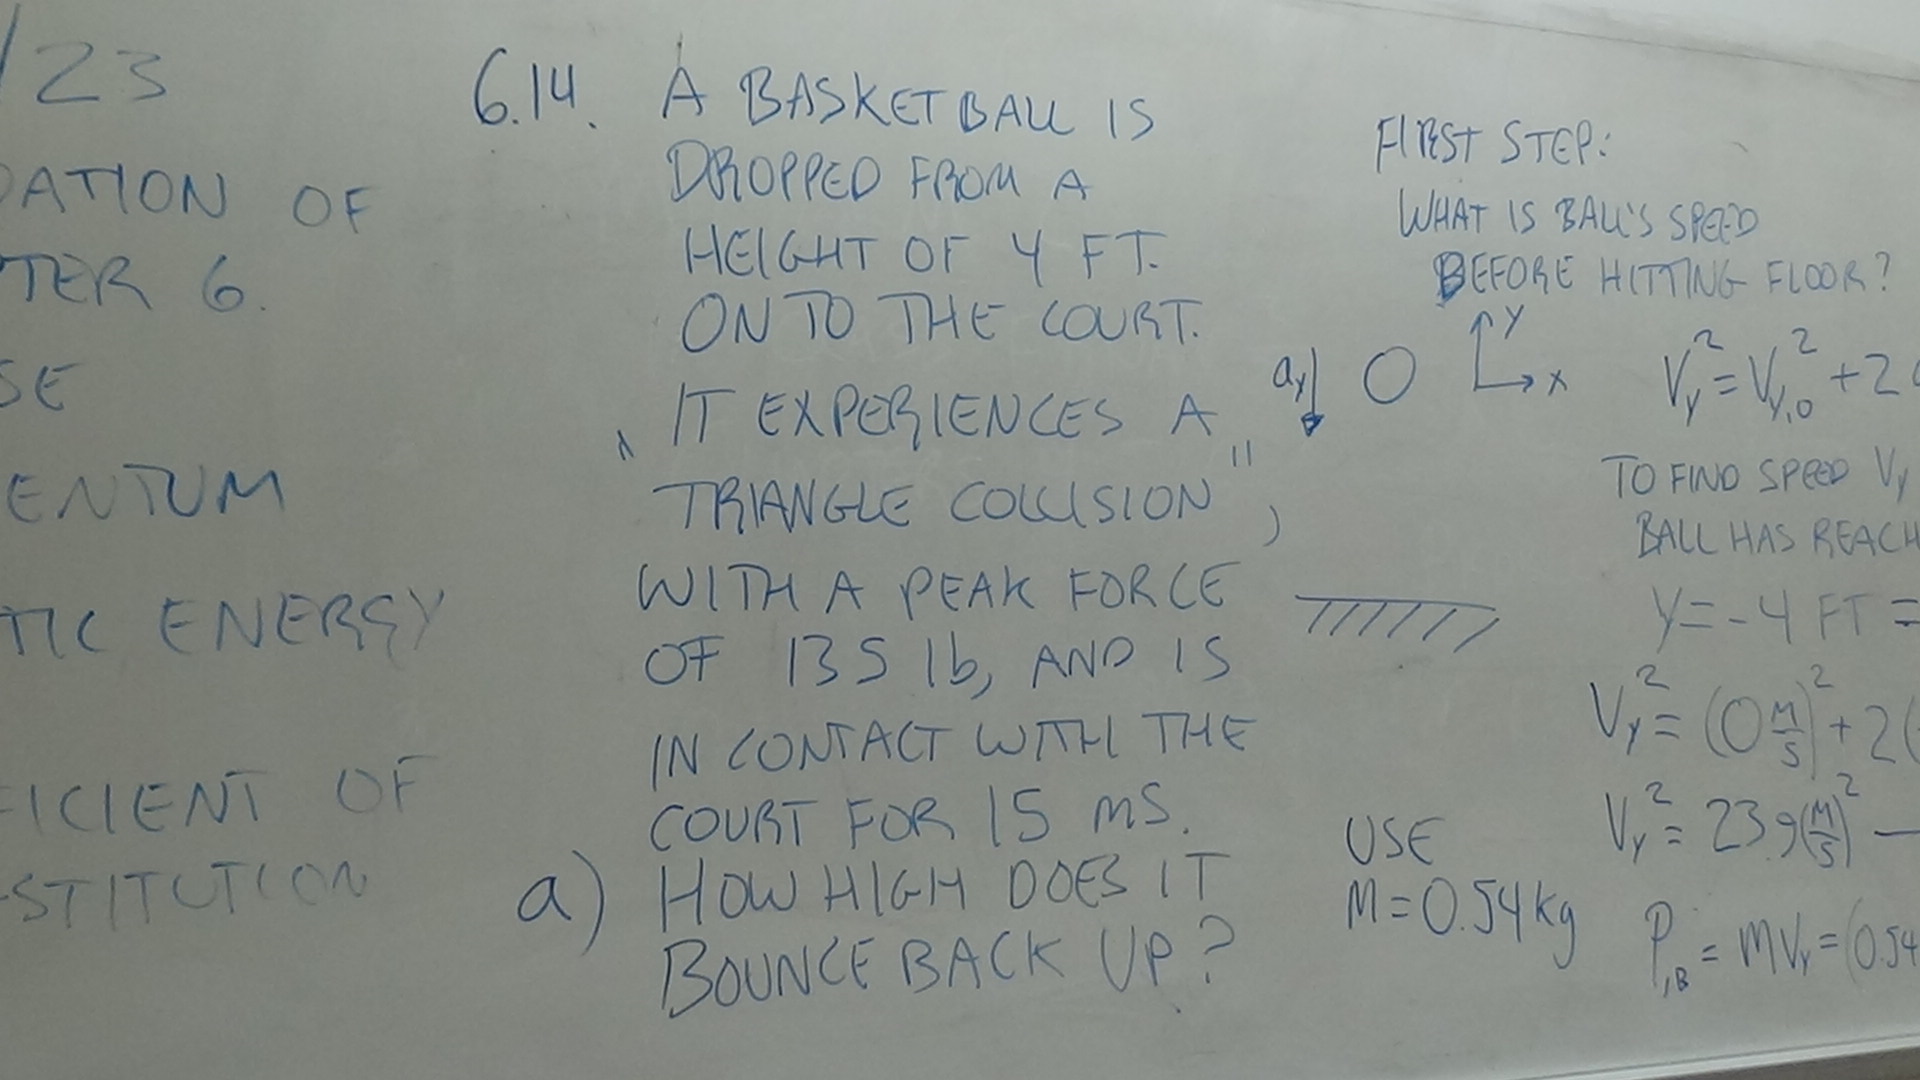 /23
DATION OF
TER 6.
SE
ENTUM
TIC ENERGY
FICIENT OF
STITUTION
6.14. A BASKETBALL IS
DROPPED FROM A
HEIGHT OF 4 FT.
ON TO THE COURT.
IT EXPERIENCES A
"TRIANGLE COLLISION",
WITH A PEAK FORCE
OF 135 lb, AND IS
IN CONTACT WITH THE
COURT FOR 15 MS.
a) HOW HIGH DOES IT
BOUNCE BACK UP?
FIRST STEP:
WHAT IS BALL'S SPEED
BEFORE HITTING FLOOR?
ay
Y
X
Vy² = Vy,0² + 2
TO FIND SPEED Vy
BALL HAS REACH
Y = -4 FT =
Vy² = (0 M/S)² + 2(
Vy² = 23.9 (M/S)² —
USE
M = 0.54 kg
P,B = MVy = (0.54